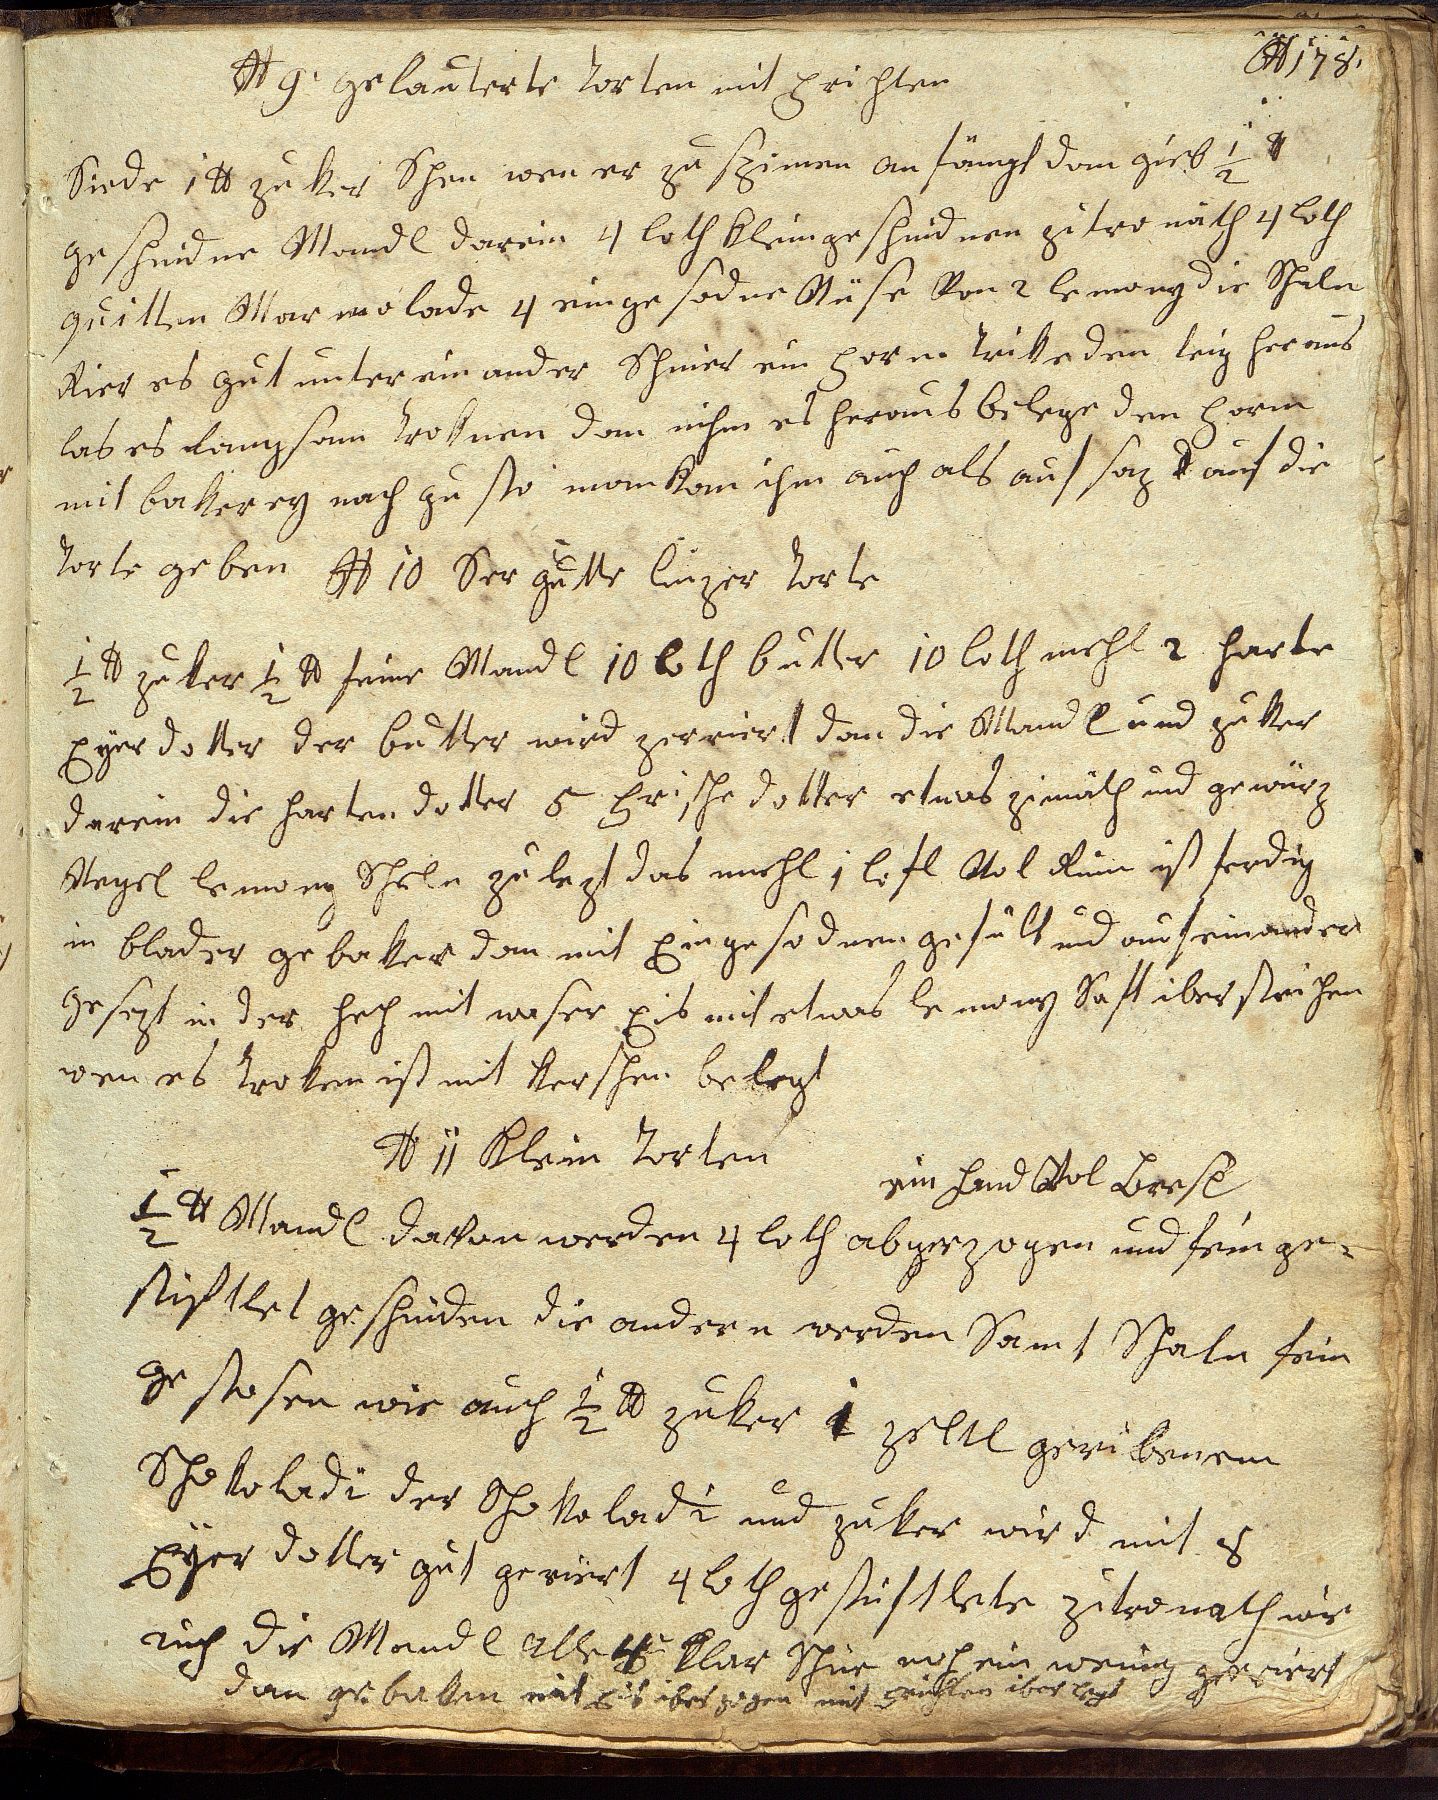 # 178.
# 9. gelauterte Torten mit Frichten
Siede 1 ℔ zuker Schen wen er zu spinen anfängt dan gieb ½ ℔
geschnidne Mandl darein 4 loth kleingeschnidnen zitronäth 4 loth
quitten Marmolade 4 eingesodne Nüse Von 2 lemony die Schaln
Rier es gut unter ein ander Schmier ein Form Trike den teig heraus
las es langsam Troknen dan nihm es heraus belege den Form
mit bakerey nach gusto man kan ihm auch als aufsaz auf die
Torte geben # 10 Ser gutte linzer Torte
½ ℔ zuker ½ ℔ feine Mandl 10 loth butter 10 loth mehl 2 harte
Eyer dotter der butter wird zerriert dan die Mandl und zuker
darein die harten dotter 5 Frische dotter etwas zimäth und gewürz
Negel lemony Schaln zulezt das mehl 1 lefl Vol Rum ist ferdig
in blader gebaken dan mit Eingesodnen gefült und auf einander
gesezt in der heh mit waser Eis mit etwas lemony Saft iberstrichen
wen es Troken ist mit kerschen belegt
# 11 Klein Torten
ein Hand Vol Bresl
½ ℔ Mandl davon werden 4 loth abgezogen und fein ge=
stiftlet geschniden die andern werden Samt Schaln fein
gestosen wie auch ½ ℔ zuker 1 zeltl geribenem
Schokoladi der Schokoladi und zuker wird mit 8
Eyer dotter gut geriert 4 loth gestiftlete zitronath wie
auch die Mandl alle klar Schne noch ein wenig geriert
dan gebaken mit Eis iberzogen mit Frichten iberlegt